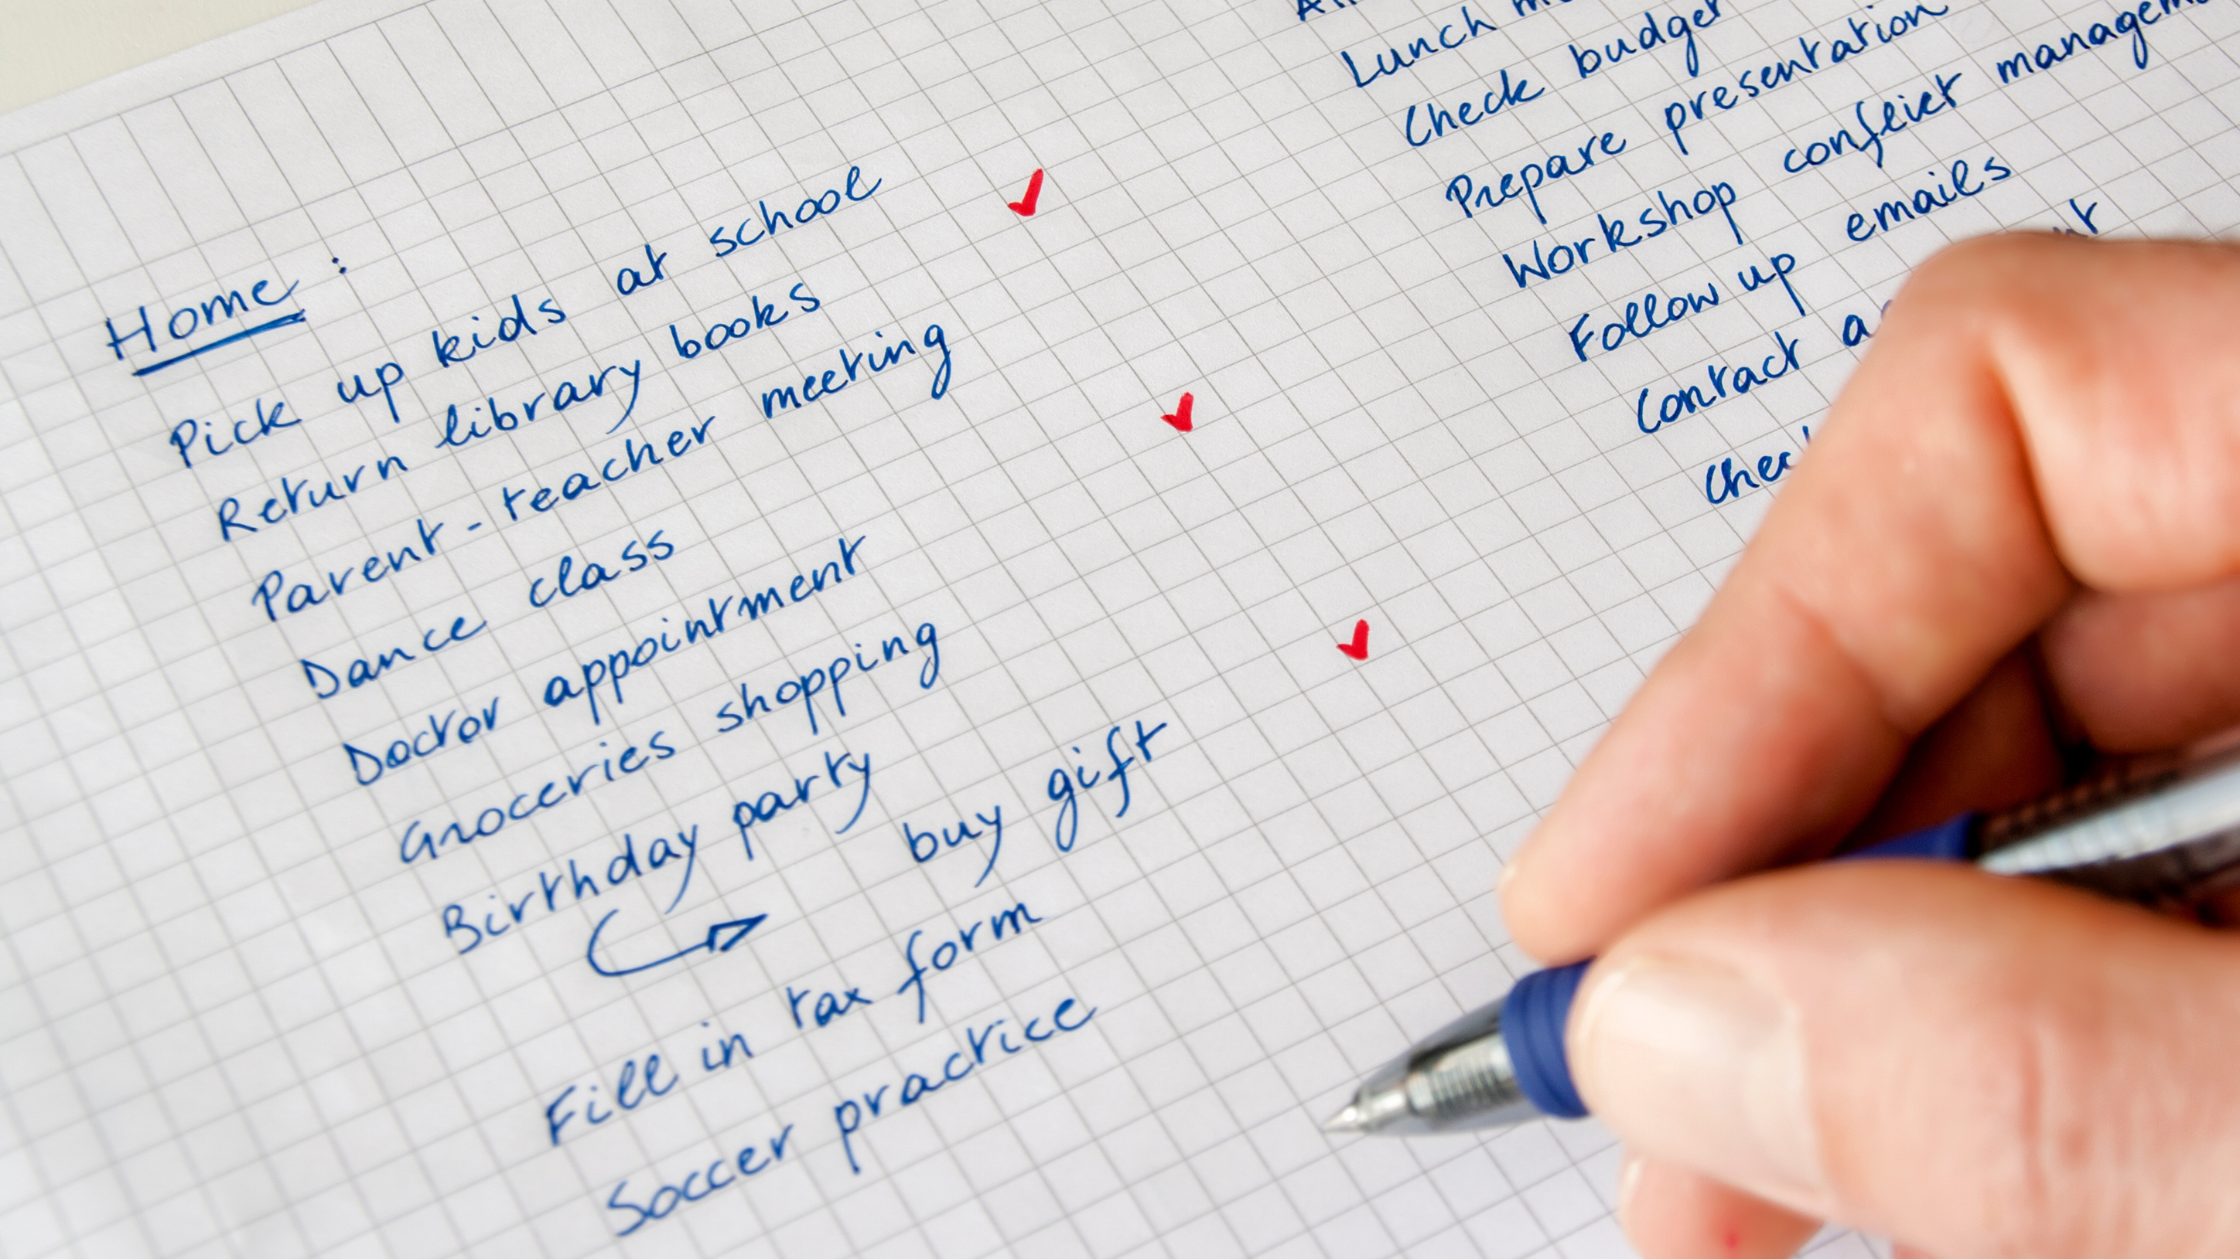 Home :
Pick up kids at school ✓
Return library books
Parent - teacher meeting
Dance class ✓
Doctor appointment
Groceries shopping
Birthday party ✓
buy gift
Fill in tax form
Soccer practice
Lunch
Check budget
Prepare presentation
Workshop
Follow up emails
Contact